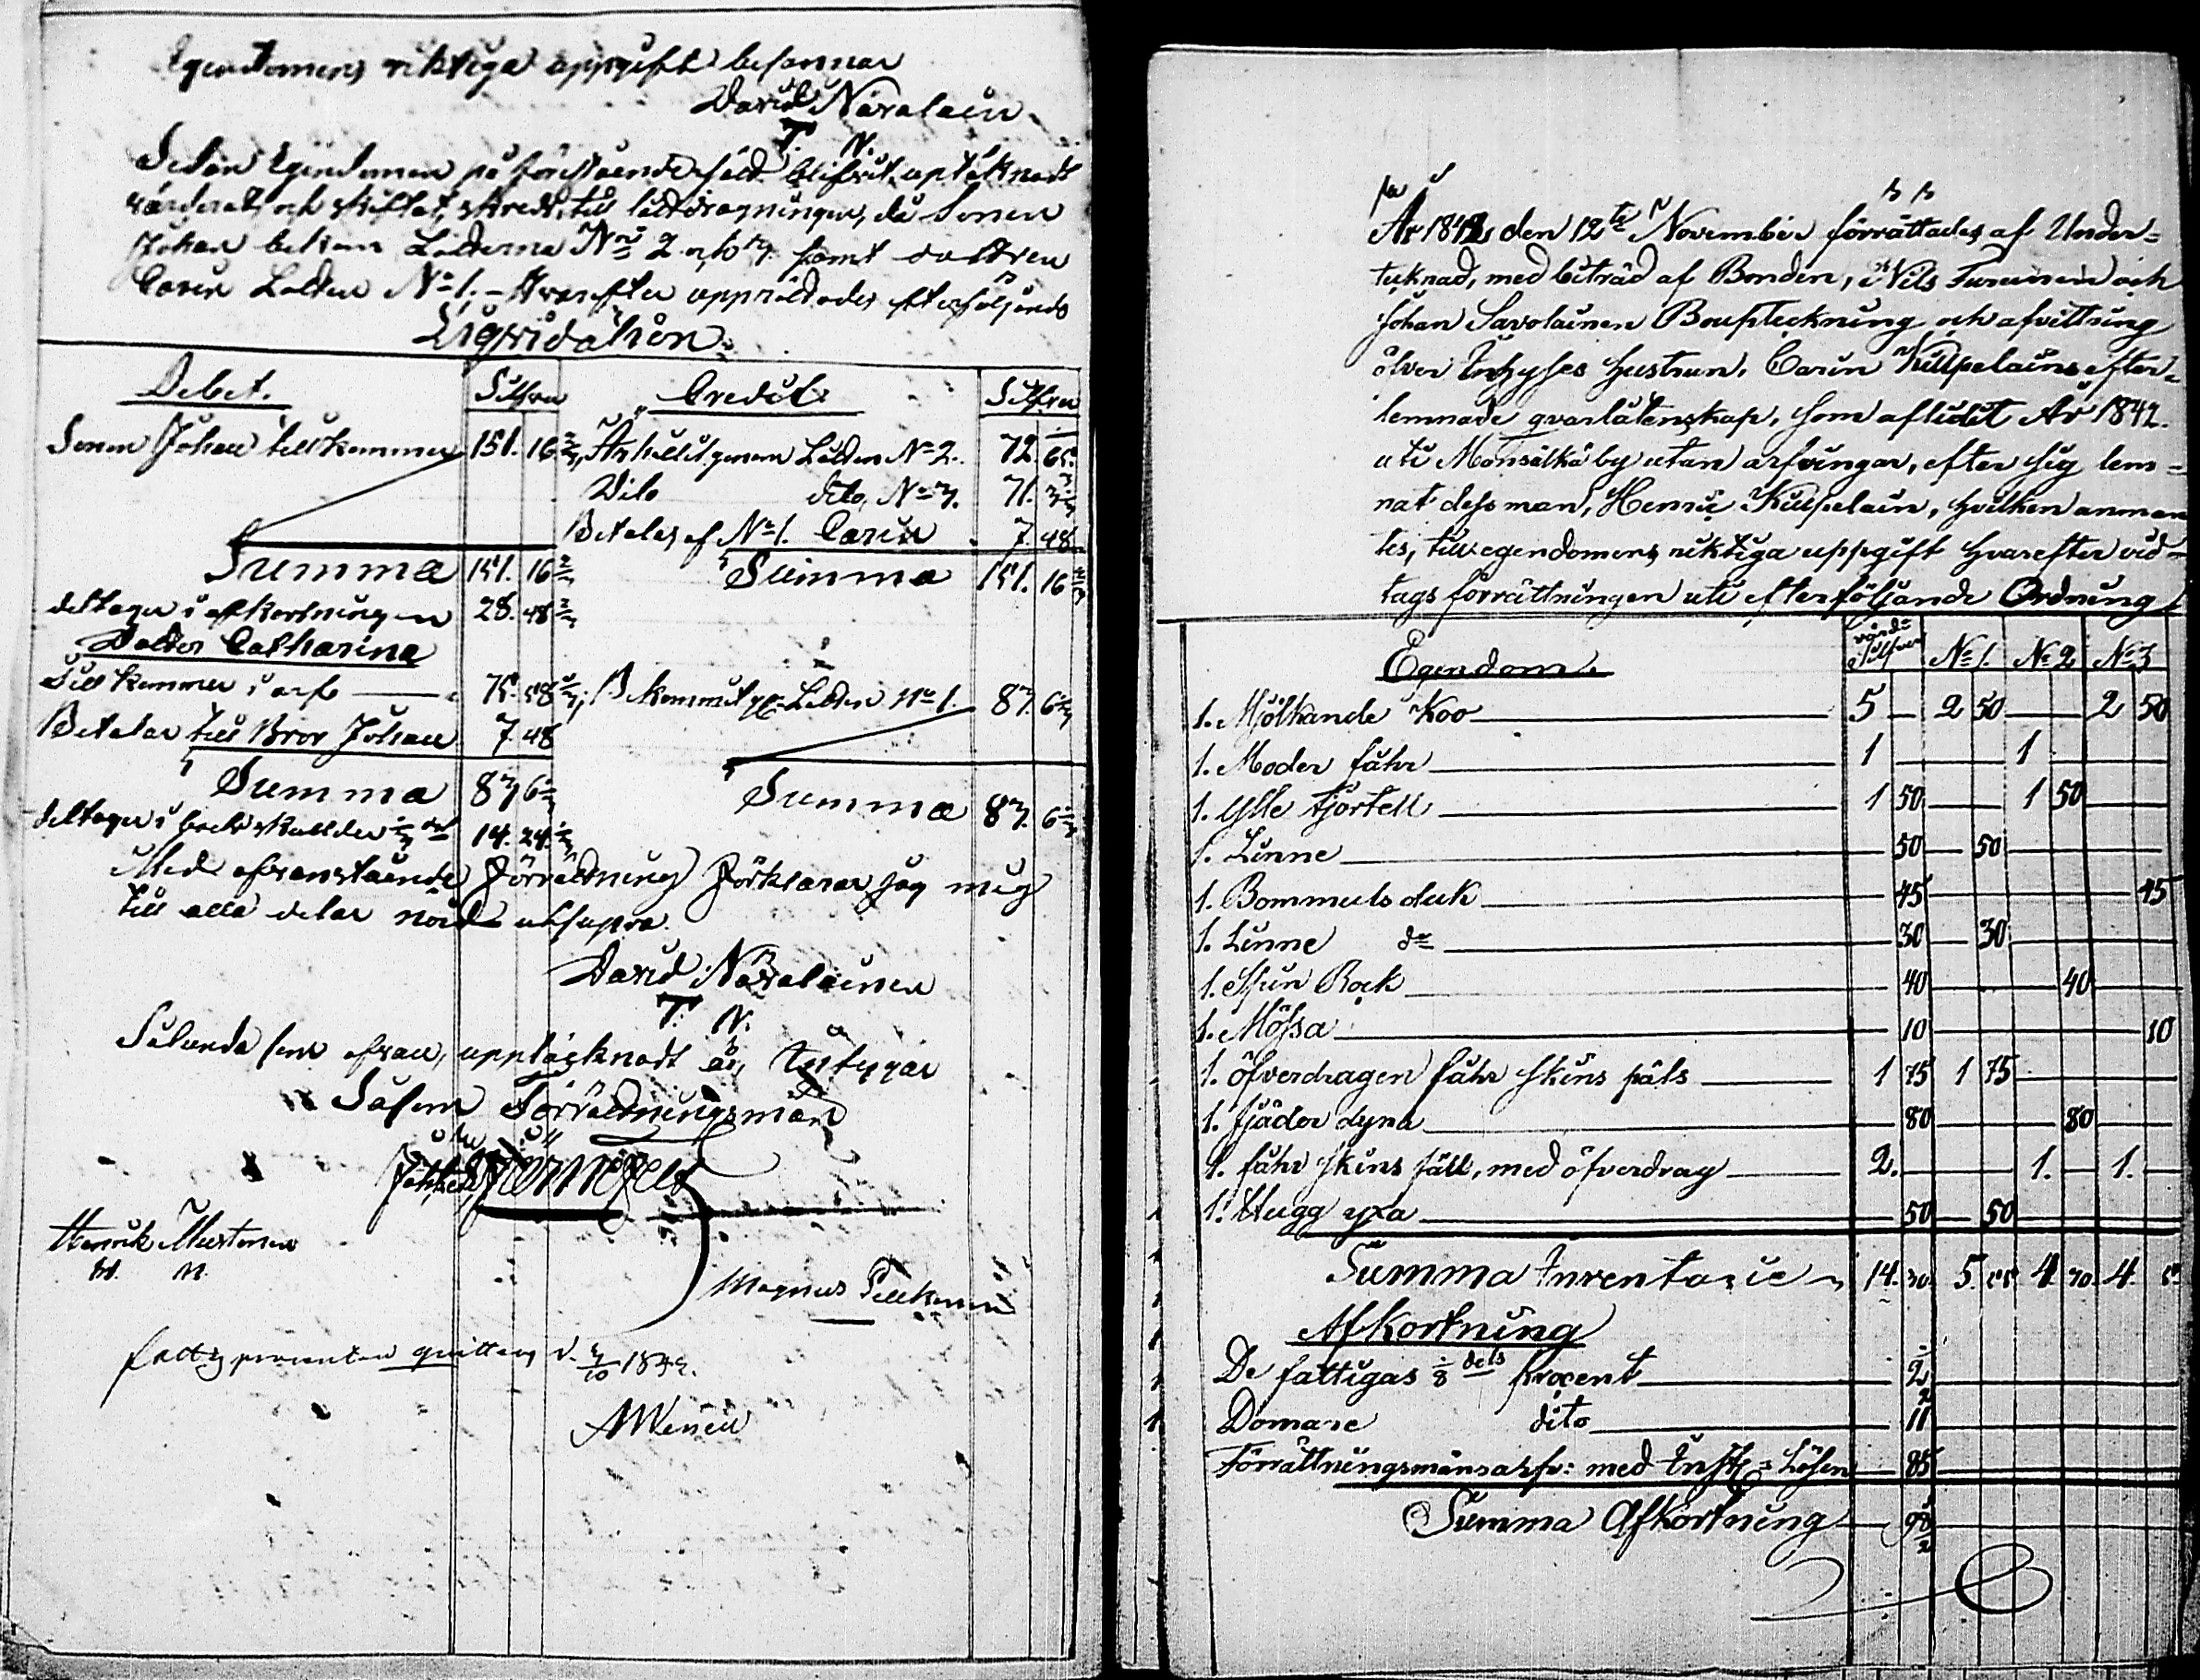 Egendomens riktiga uppgift besannar
David Navalain
T. N.
Sedan Egendomen på föreståendesätt blifvit upteknadt
värderat, och skiftat, skreds till lottdragningen, då Sonen
Johan bekom Lotterna No 2 och 3. samt dottren
Carin Lotten No 1. – Hvarefter upprättades efterföljande
Liqvidation
Debet. Silfver Credit Silfver
Sonen Johan tillkommer 151. 16 2/3 Arhållit genom Lotten No 2. 72. 65.
Dito dito, No 3. 71.
Betales af No 1. Carin 7. 48
Summa 151. 16 2/3 Summa 151. 16 2/3
deltager i afkortningen 28. 48 2/3
Dotter Catharina
Till kommer i arf 75. 58 Bekommit gm Lotten No 1. 87. 6
Betalar till Bror Johan 7. 48
Summa 87 6 Summa 87. 6
deltager i 14. 24.
Med ofvanstående förrättning förklarar jag mig
till alla delar nöjd utsupra.
David Navalainen
T. N.
Sålunda som ofvan, upptäcknadt är, Intygar
Såsom Förrättningsmän
Henrik Mustonen
M.
Magnus Pelkonen
fattigprocenten qvitteras d. 18
År 1842 den 12te November förrättades af Under=
tecknad, med biträd af Bonden, Nils Turunen och
Johan Savolainen Boupteckning och afvittring
öfver Inhyses Hustrun, Carin Kilpelains efter=
lemnade qvarlåtenskap, som aflidit År 1842.
uti Mansälkä by utan arfvingar, efter sig lem=
nat dess man, Henric Kilpelain, hvilken anman
tes, till egendomens riktiga uppgift hvarefter vid=
tags förrättningen uti efterföljande Ordning
Egendom. värde Silfver No 1. No 2 No 3
1. Mjölkande Koo 5 – 2 50 2 50
1. Moder fåhr 1 1
1. Ylle tjortell 1 50 1 50
1. Linne 50 50
1. Bommuls duk 45 45
1. Linne do 30 30
1. Spin Rock 40 40
1. Mössa 10 10
1. öfverdragen fåhr skins päls 1 75 1 75
1. fjäder dyna 80 80
1. fåhr skins fäll, med öfverdrag 2. 1. 1.
1. Hugg yxa 50 50
Summa Inventarie 14. 30. 5. 55 4 70. 4. 5
Afkortning
De fattigas 1/8 dels Procent 2
Domare dito 11
Förrättningsmäns arfv: med Insk: Lösen 85
Summa Afkortning 98 1/2